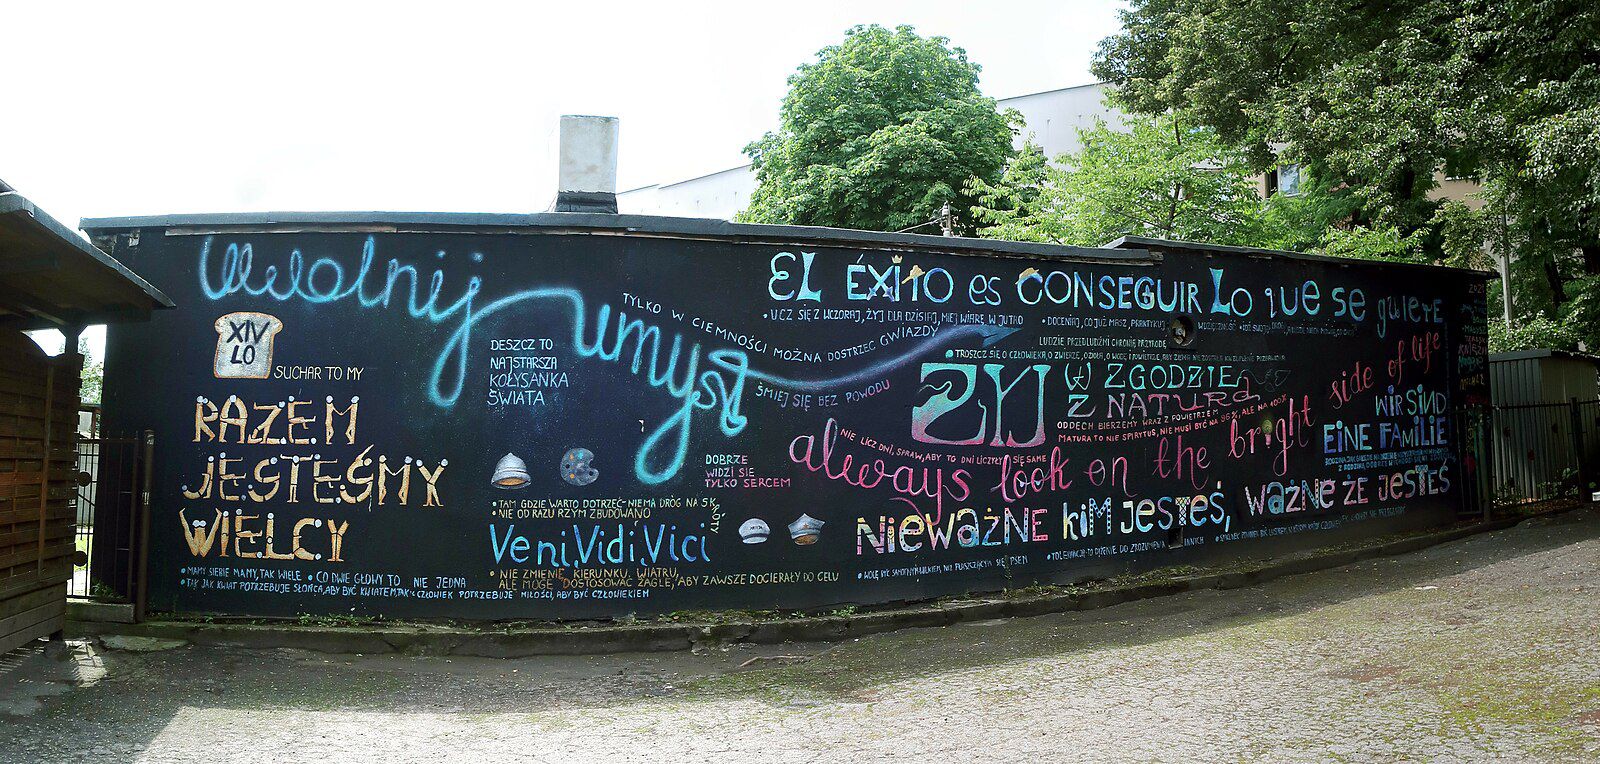 Uwolnij umysł
XIV
LO
SUCHAR TO MY
RAZEM
JESTEŚMY
WIELCY
• MAMY SIEBIE MAMY, TAK WIELE • CO DWIE GŁOWY TO NIE JEDNA
• TAK JAK KWIAT POTRZEBUJE SŁOŃCA, ABY BYĆ KWIATEM, TAK CZŁOWIEK POTRZEBUJE MIŁOŚCI, ABY BYĆ CZŁOWIEKIEM
DESZCZ TO
NAJSTARSZA
KOŁYSANKA
ŚWIATA
TYLKO W CIEMNOŚCI MOŻNA DOSTRZEC GWIAZDY
ŚMIEJ SIĘ BEZ POWODU
DOBRZE
WIDZI SIĘ
TYLKO SERCEM
• TAM GDZIE WARTO DOTRZEĆ - NIE MA DRÓG NA SKRÓTY
• NIE OD RAZU RZYM ZBUDOWANO
Veni, Vidi, Vici
• NIE ZMIENIĘ KIERUNKU WIATRU,
ALE MOGĘ DOSTOSOWAĆ ŻAGLE, ABY ZAWSZE DOCIERAŁY DO CELU
EL ÉXITO es CONSEGUIR Lo que se quiere
• UCZ SIĘ Z WCZORAJ, ŻYJ DLA DZISIAJ, MIEJ WIARĘ W JUTRO • DOCENIAJ, CO JUŻ MASZ, PRAKTYKUJ WDZIĘCZNOŚĆ
LUDZIE PRZED LUDŹMI CHRONIĄ PRZYRODĘ
• TROSZCZ SIĘ O CZŁOWIEKA, O ZWIERZĘ
ŻYJ W ZGODZIE
Z NATURĄ
ODDECH BIERZEMY WRAZ Z POWIETRZEM
MATURA TO NIE SPIRYTUS, NIE MUSI BYĆ NA 96%, ALE NA 100%
NIE LICZ DNI, SPRAW, ABY TO DNI LICZYŁY SIĘ SAME
always look on the bright side of life
WIR SIND
EINE FAMILIE
NIEWAŻNE KIM JESTEŚ, WAŻNE ŻE JESTEŚ
• TOLERANCJA TO DĄŻENIE DO ZROZUMIENIA INNYCH
2021